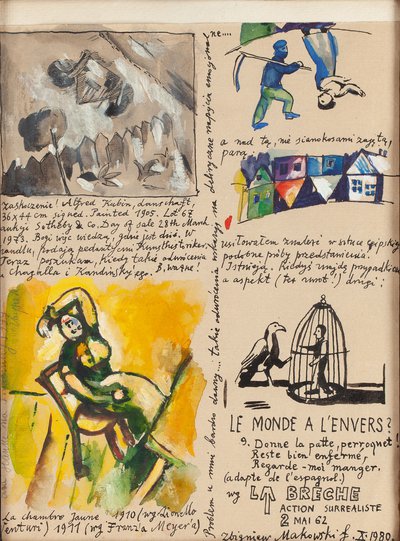 zaskoczenie! Alfred Kubin, landschaft,
36x44 cm signed. Painted 1905. Lot 67
aukcji Sotheby & Co. Day of sale 28th March
1973. Bogi więc wiedzą, gdzie jest dziś. W
handlu, podają pedantyczni Kunsthistoriker.
Teraz poszukam, kiedy takie odwrócenia
u Chagalla i Kandinsky'ego. B. ważne!
La chambre Jaune 1910 (wg Lionello
Venturi) 1911 (wg Franza Meyer'a)
Problem u mnie bardzo dawny... takie odwrócenia wskazują na napięcia emocjonal
ne....
a nad tą, nie sianokosami zajętą,
parą
usiłowałem znaleźć w sztuce
podobne próby przedstawienia.
Istnieją. Kiedyś znajdę przypadkiem
a aspekt (ten zwrot!) drugi:
LE MONDE A L'ENVERS?
9. Donne la patte, perroquet!
Reste bien enfermé,
Regarde-moi manger.
(adapté de l'espagnol.)
wg LA BRECHE
ACTION SURREALISTE
2 MAI 62
Zbigniew Makowski f. X. 1980.